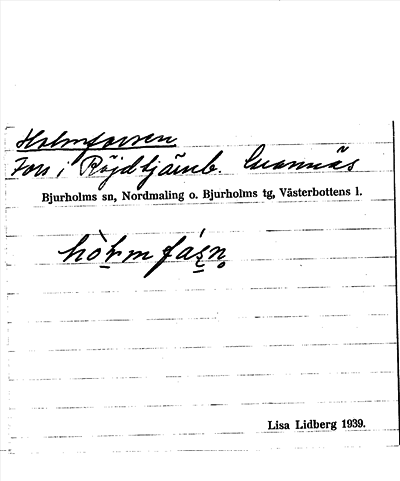 Holmforsen
Fors i Röjdtjärnb. Lvannäs
Bjurholms sn, Nordmaling o. Bjurholms tg, Västerbottens l.
hòḻmfáṣṇ
Lisa Lidberg 1939.